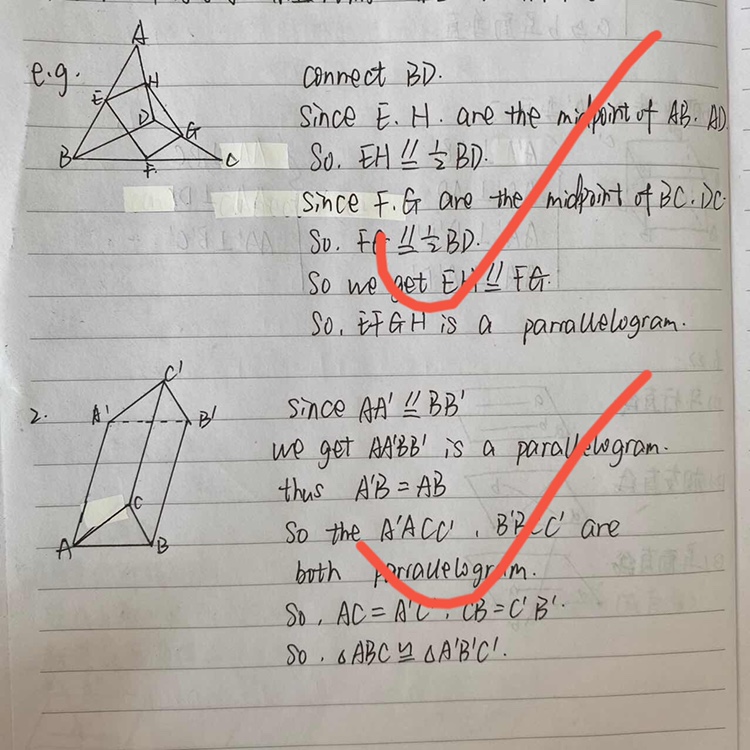 e.g.
A
E
H
D
G
B
F.
C
connect BD.
Since E. H. are the midpoint of AB. AD
So. EH ∥= ½ BD.
Since F. G are the midpoint of BC. DC.
So. FG ∥= ½ BD.
So we get EH ∥= FG.
So. EFGH is a parrallelogram.
2.
C'
A'
B'
C
A
B
Since AA' ∥= BB'
we get AA'BB' is a parallelogram.
thus A'B = AB
So the A'ACC' . B'BCC' are
both parrallelogram.
So. AC = A'C' . CB = C'B'.
So. △ABC ≌ △A'B'C'.